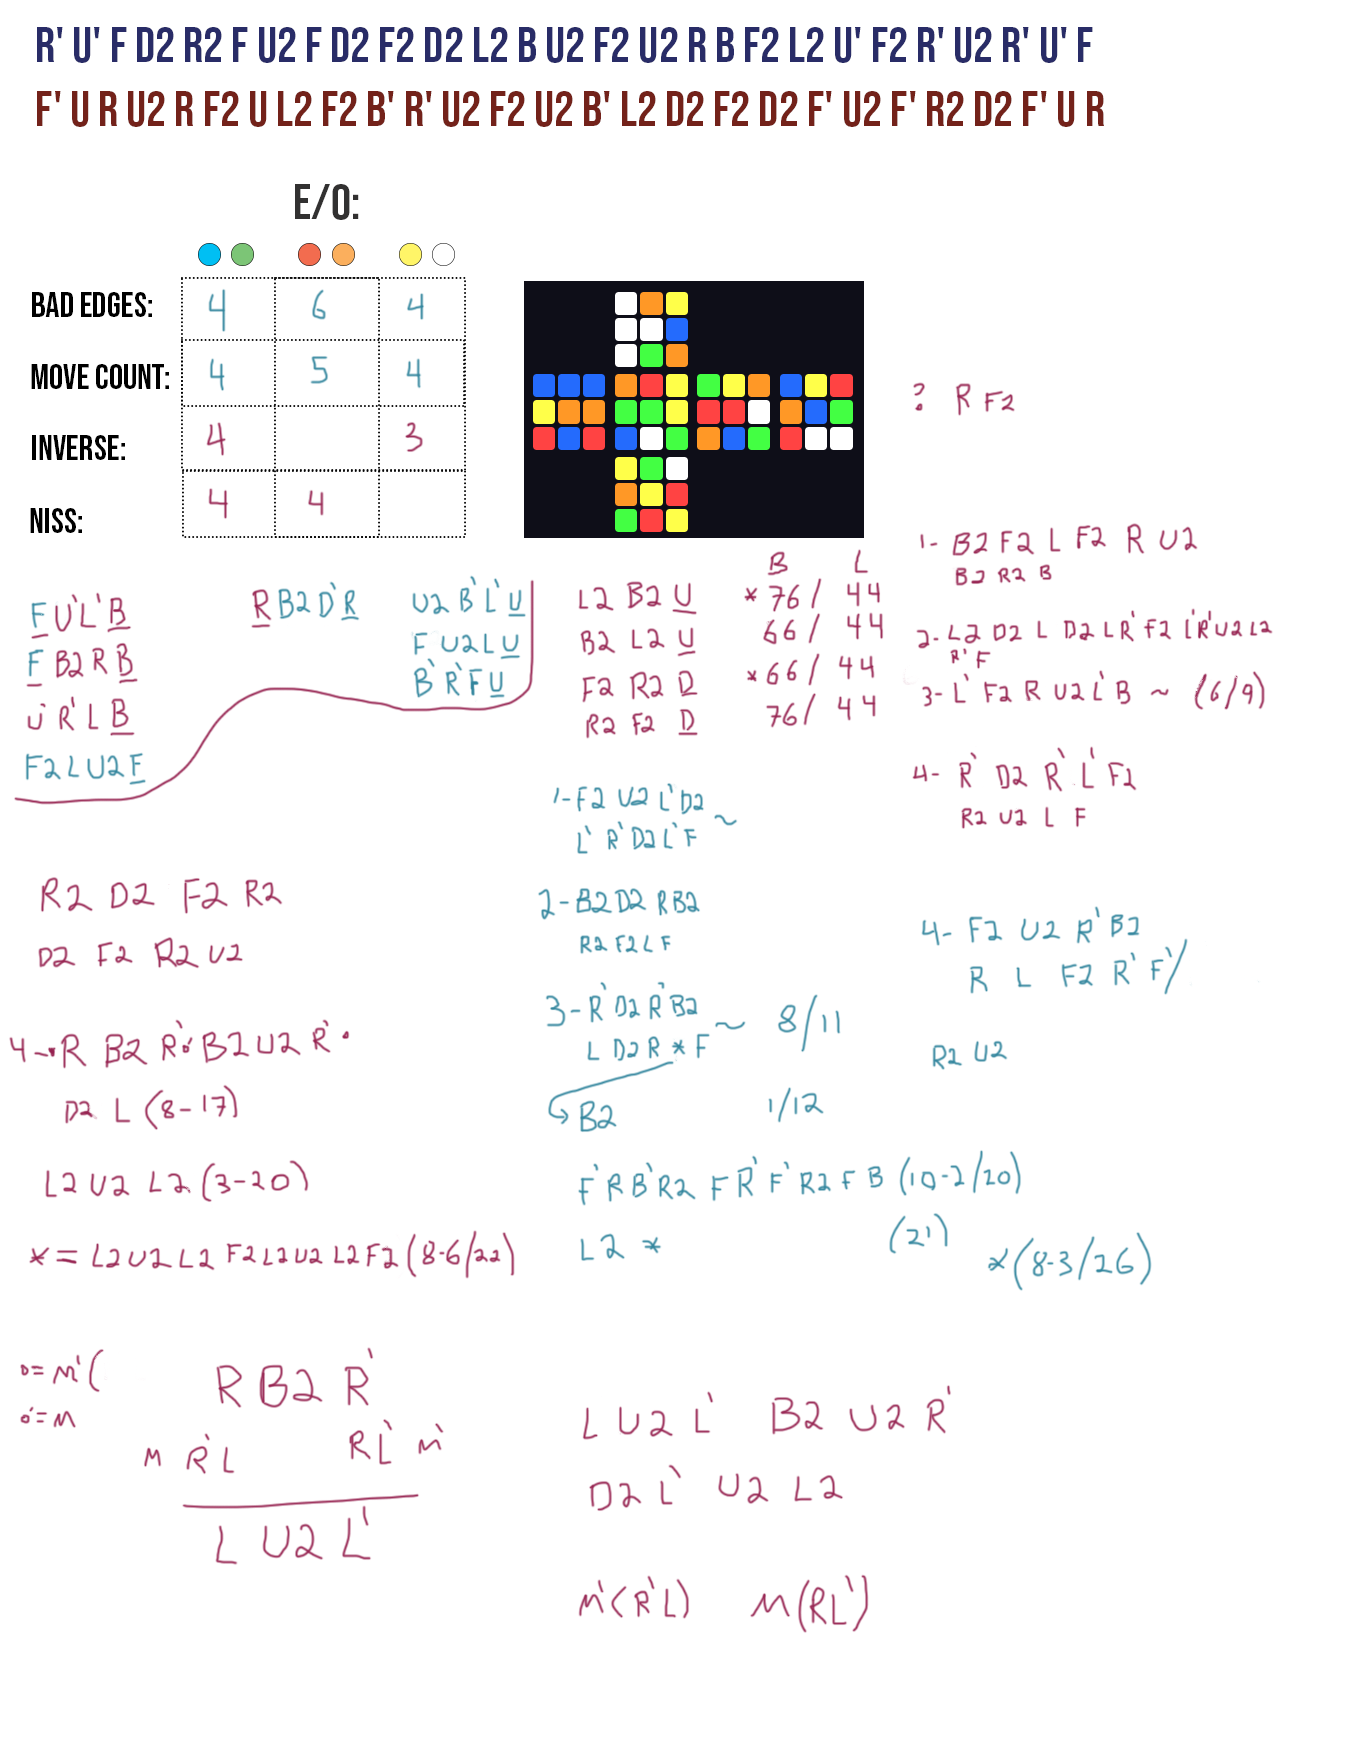 R' U' F D2 R2 F U2 F D2 F2 D2 L2 B U2 F2 U2 R B F2 L2 U' F2 R' U2 R' U' F
F' U R U2 R F2 U L2 F2 B' R' U2 F2 U2 B' L2 D2 F2 D2 F' U2 F' R2 D2 F' U R
E/O:
BAD EDGES: 4 6 4
MOVE COUNT: 4 5 4
INVERSE: 4 3
NISS: 4 4
? R F2
F U' L' B
F B2 R B
U' R' L B
F2 L U2 F
R B2 D' R
U2 B' L' U
F U2 L U
B' R' F U
B L
L2 B2 U * 76/ 44
B2 L2 U 66/ 44
F2 R2 D * 66/ 44
R2 F2 D 76/ 44
1- B2 F2 L F2 R U2
B2 R2 B
2- L2 D2 L D2 L R' F2 L' R' U2 L2
R' F
3- L' F2 R U2 L' B ~ (6/9)
4- R' D2 R' L' F2
R2 U2 L F
1- F2 U2 L' D2
L' R' D2 L' F ~
2- B2 D2 R B2
R2 F2 L F
3- R' D2 R' B2
L D2 R * F ~ 8/11
B2 1/12
4- F2 U2 R' B2
R L F2 R' F' /
R2 U2
F' R B' R2 F R' F' R2 F B (10-2/20)
L2 * (21)
*(8-3/26)
R2 D2 F2 R2
D2 F2 R2 U2
4- R B2 R' B2 U2 R'
D2 L (8-17)
L2 U2 L2 (3-20)
* = L2 U2 L2 F2 L2 U2 L2 F2 (8-6/22)
o= M' (
o'= M
R B2 R'
M R' L R L' M'
L U2 L'
L U2 L' B2 U2 R'
D2 L' U2 L2
M' (R' L) M (R L')